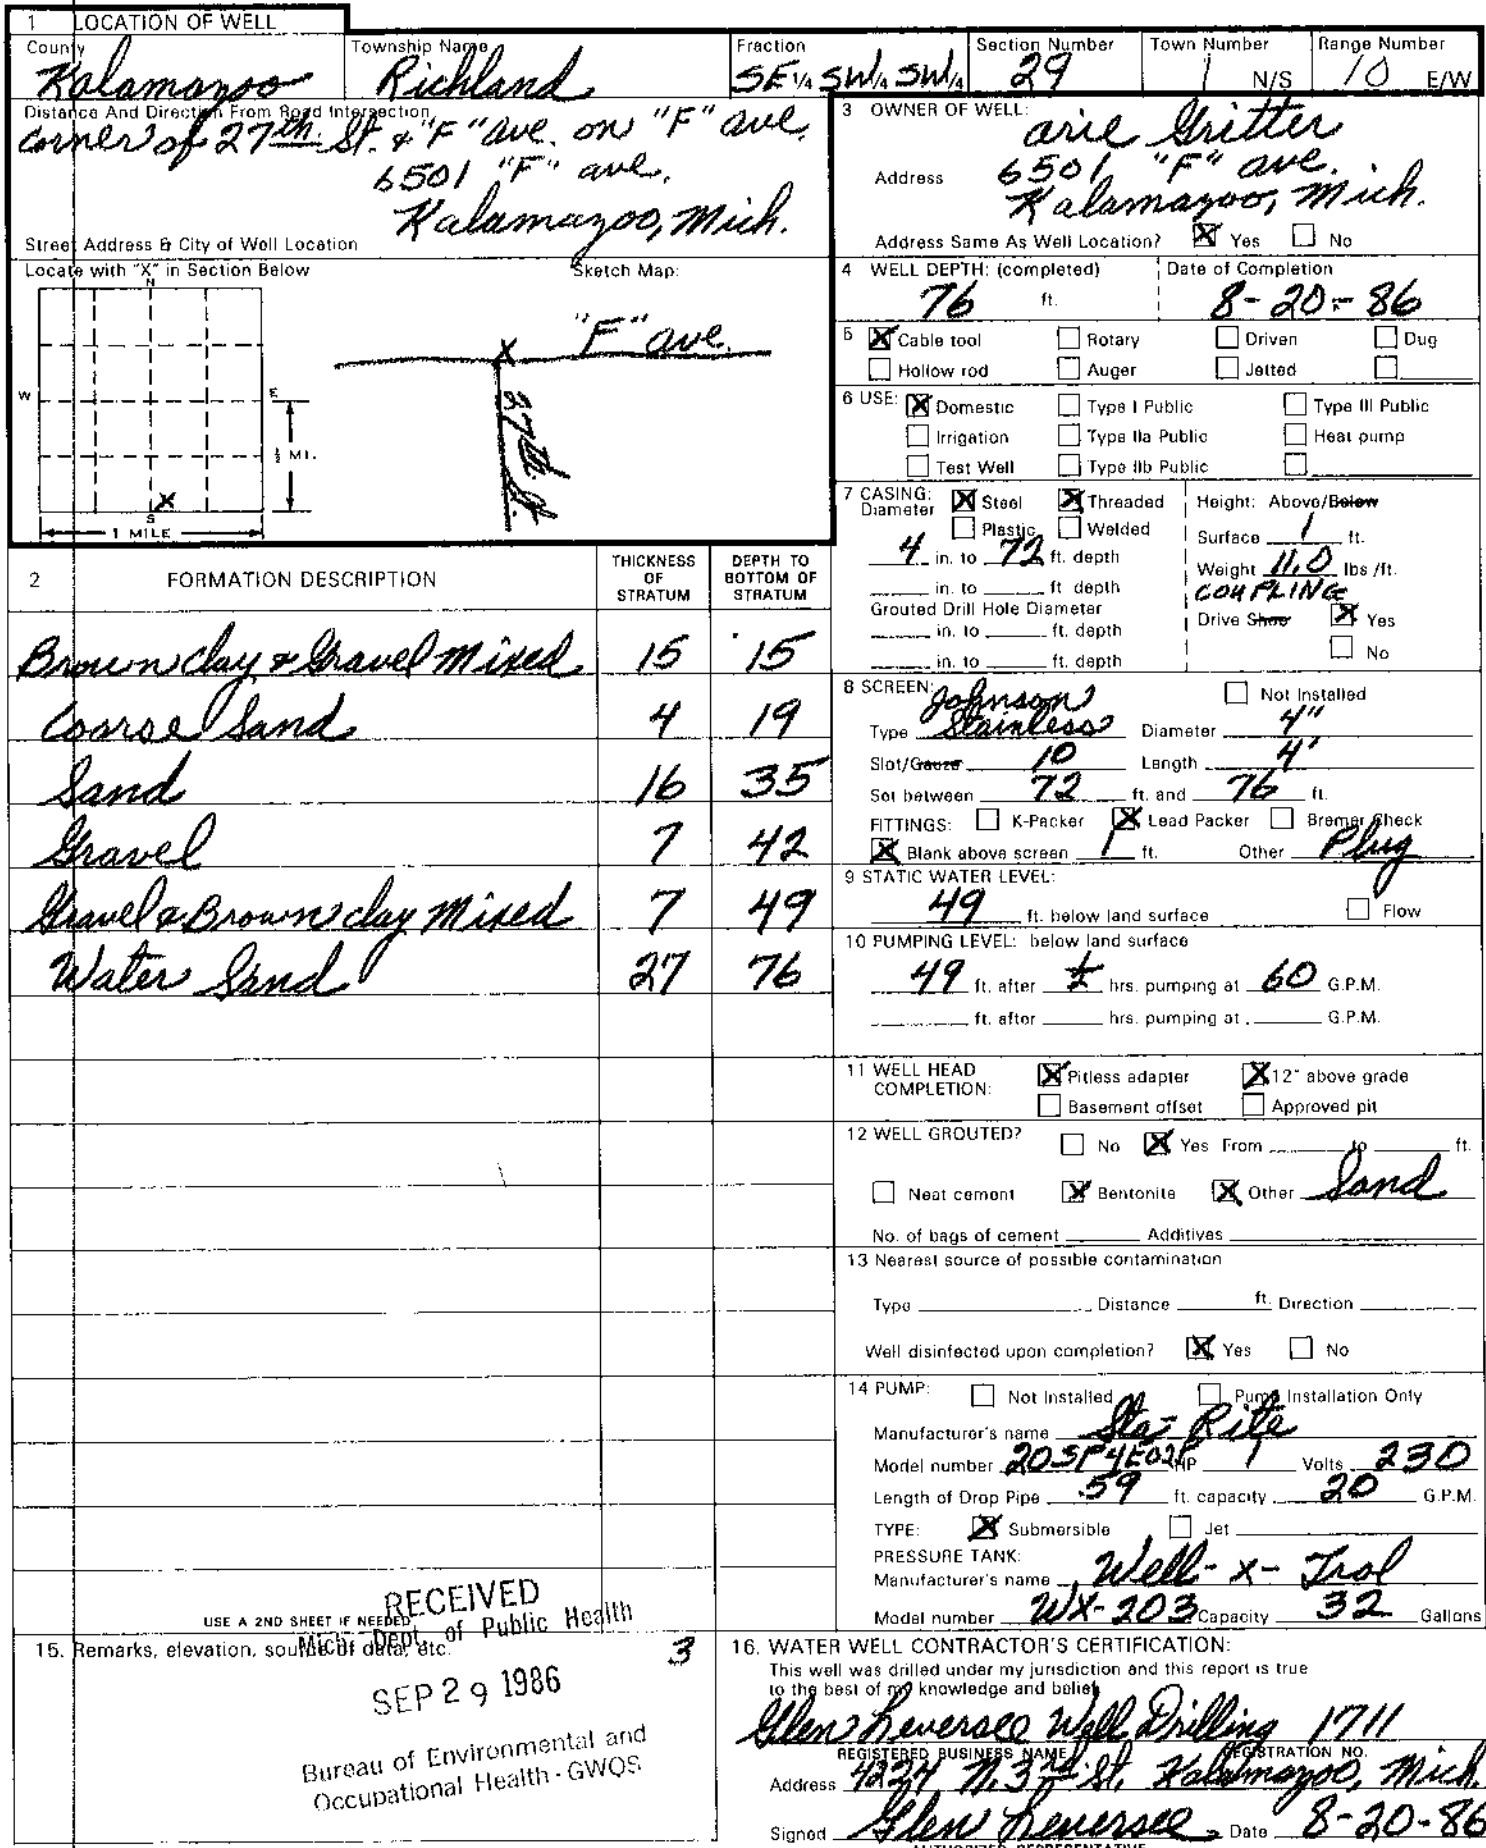 1 LOCATION OF WELL
County Kalamazoo
Township Name Richland
Fraction SE 1/4 SW 1/4 SW 1/4
Section Number 29
Town Number 1 N/S
Range Number 10 E/W
Distance And Direction From Road Intersection
Corner of 27th St. & "F" ave. on "F" ave.
6501 "F" ave.
Kalamazoo, Mich.
Street Address & City of Well Location
Locate with "X" in Section Below
Sketch Map:
N
W
E
S
X
½ MI.
1 MILE
"F" ave.
X
27th St.
2 FORMATION DESCRIPTION
THICKNESS OF STRATUM
DEPTH TO BOTTOM OF STRATUM
Brown clay & Gravel Mixed 15 15
Coarse Sand 4 19
Sand 16 35
Gravel 7 42
Gravel & Brown clay Mixed 7 49
Water Sand 27 76
USE A 2ND SHEET IF NEEDED
3 OWNER OF WELL:
arie Gritter
Address 6501 "F" ave.
Kalamazoo, Mich.
Address Same As Well Location? X Yes No
4 WELL DEPTH: (completed) 76 ft.
Date of Completion 8-20-86
5 X Cable tool Rotary Driven Dug
Hollow rod Auger Jetted
6 USE: X Domestic Type I Public Type III Public
Irrigation Type IIa Public Heat pump
Test Well Type IIb Public
7 CASING: Diameter X Steel X Threaded
Plastic Welded
4 in. to 72 ft. depth
in. to ft. depth
Grouted Drill Hole Diameter
in. to ft. depth
in. to ft. depth
Height: Above/Below
Surface 1 ft.
Weight 11.0 lbs/ft.
COUPLING
Drive Shoe X Yes
No
8 SCREEN: Not Installed
Type Johnson Stainless Diameter 4"
Slot/Gauze 10 Length 4'
Set between 72 ft. and 76 ft.
FITTINGS: K-Packer X Lead Packer Bremer Check
X Blank above screen 1 ft. Other Plug
9 STATIC WATER LEVEL:
49 ft. below land surface Flow
10 PUMPING LEVEL: below land surface
49 ft. after hrs. pumping at 60 G.P.M.
ft. after hrs. pumping at G.P.M.
11 WELL HEAD COMPLETION: X Pitless adapter X 12" above grade
Basement offset Approved pit
12 WELL GROUTED? No X Yes From to ft.
Neat cement X Bentonite X Other Sand
No. of bags of cement Additives
13 Nearest source of possible contamination
Type Distance ft. Direction
Well disinfected upon completion? X Yes No
14 PUMP: Not Installed Pump Installation Only
Manufacturer's name Sta-Rite
Model number 20SP4E02P HP 1 Volts 230
Length of Drop Pipe 59 ft. capacity 20 G.P.M.
TYPE: X Submersible Jet
PRESSURE TANK:
Manufacturer's name Well-x-Trol
Model number WX-203 Capacity 32 Gallons
15. Remarks, elevation, source of data, etc. 3
RECEIVED
Mich. Dept. of Public Health
SEP 29 1986
Bureau of Environmental and
Occupational Health - GWQS
16. WATER WELL CONTRACTOR'S CERTIFICATION:
This well was drilled under my jurisdiction and this report is true
to the best of my knowledge and belief.
Glen Leversee Well Drilling 1711
REGISTERED BUSINESS NAME REGISTRATION NO.
Address 4224 N. 3rd St. Kalamazoo, Mich.
Signed Glen Leversee Date 8-20-86
AUTHORIZED REPRESENTATIVE